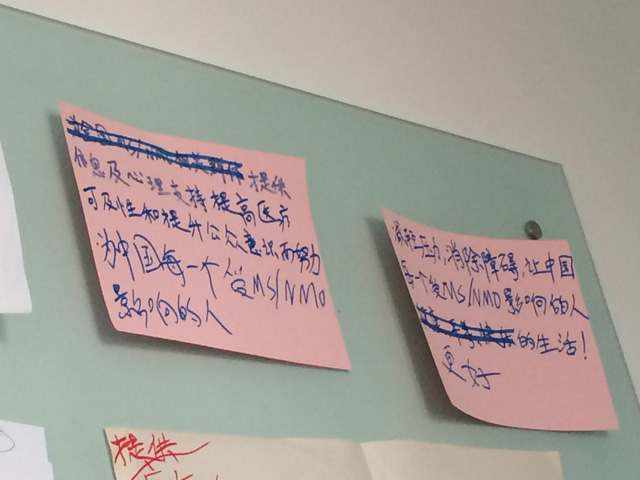 提供
信息及心理支持提高医疗
可及性和提升公众意识而努力
为中国每一个受MS/NMO
影响的人
减轻压力,消除障碍,让中国
每一个受MS/NMO影响的人
的生活!
更好
提供